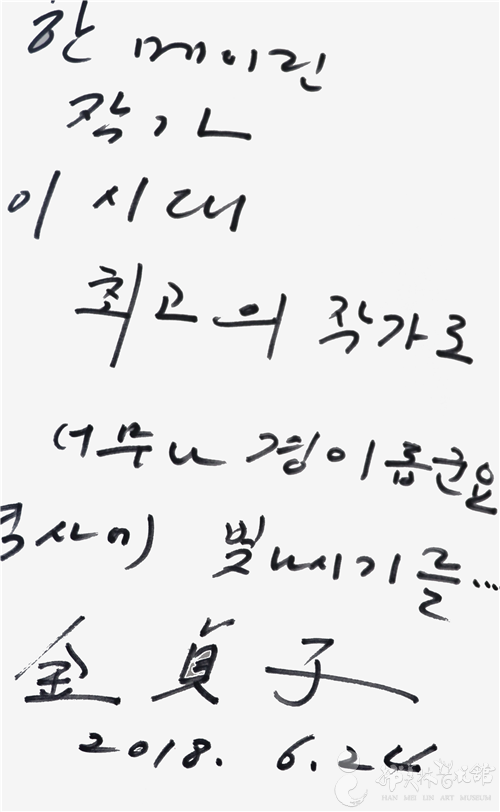 한메이린
작가
이시대
최고의 작가로
너무나 경이롭군요
역사에 빛나시기를...
金貞子
2018. 6.24
韩美林艺术馆
HAN MEI LIN ART MUSEUM